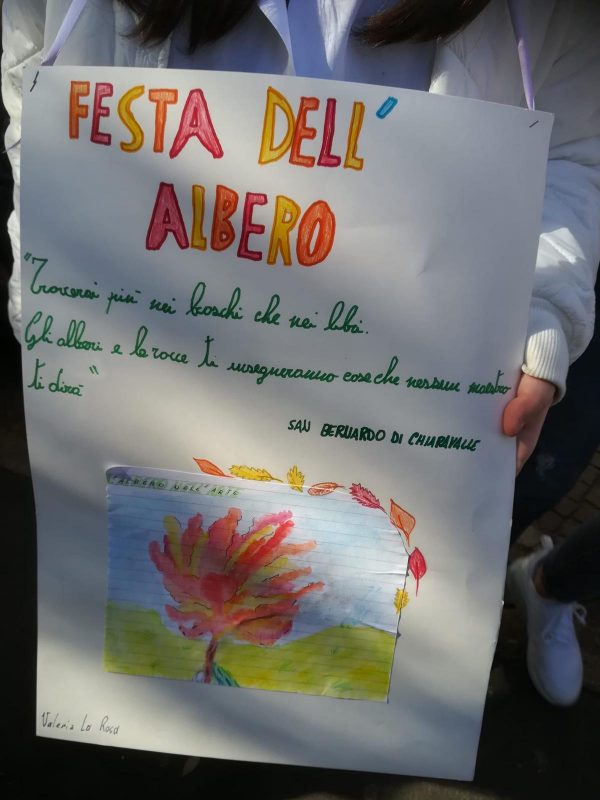 FESTA DELL'
ALBERO
"Troverai più nei boschi che nei libri.
Gli alberi e le rocce ti insegneranno cose che nessun maestro
ti dirà"
SAN BERNARDO DI CHIARAVALLE
L'ALBERO NELL'ARTE
Valeria La Roca